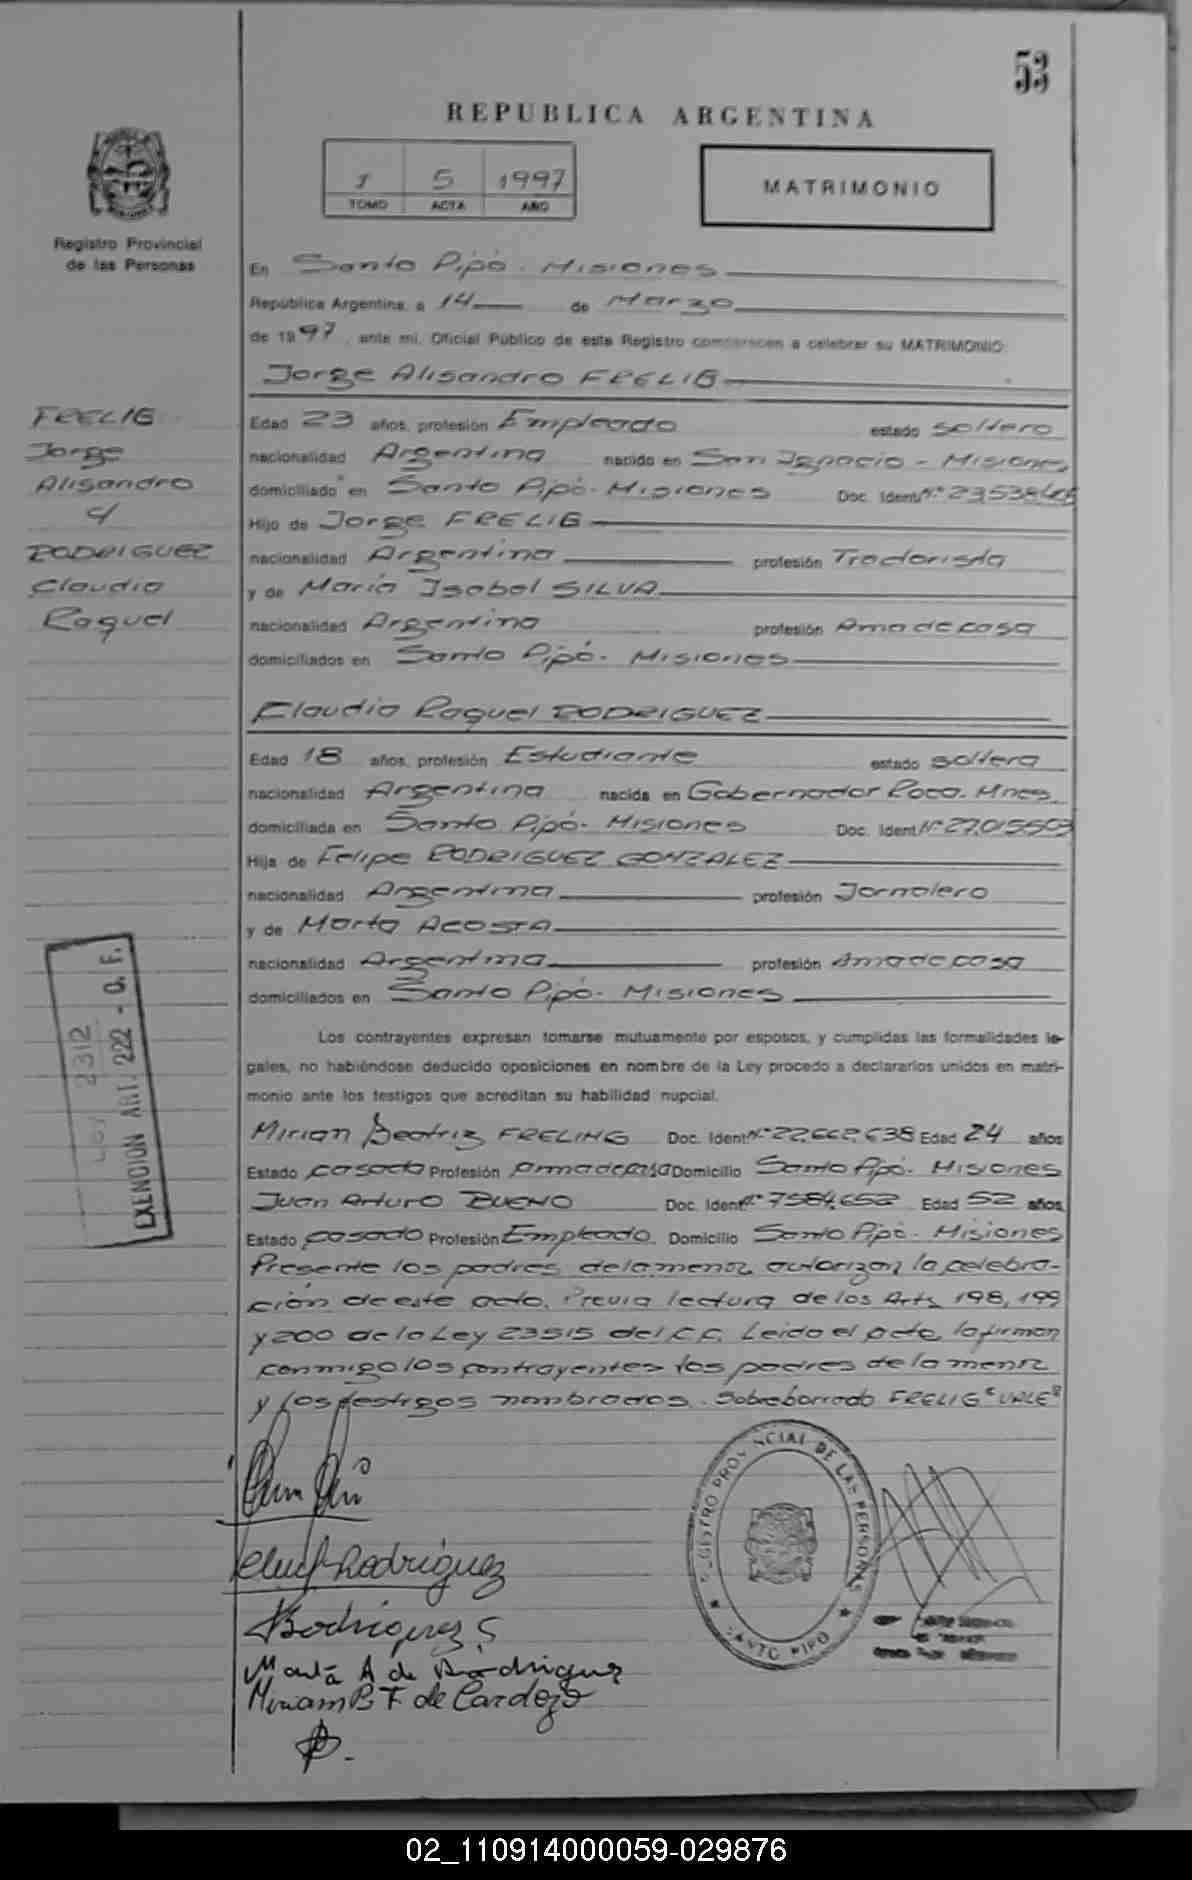 53
REPUBLICA ARGENTINA
1 5 1997
TOMO ACTA AÑO
MATRIMONIO
Registro Provincial
de las Personas
En Santo Pipó - Misiones
República Argentina, a 14 de Marzo
de 1997, ante mí, Oficial Público de este Registro comparecen a celebrar su MATRIMONIO:
Jorge Alisandro FRELIG
FRELIG
Jorge
Alisandro
c/
RODRIGUEZ
Claudia
Raquel
Edad 23 años, profesión Empleado estado soltero
nacionalidad Argentina nacido en San Ignacio - Misiones
domiciliado en Santo Pipó - Misiones Doc. Ident. Nº
Hijo de Jorge FRELIG
nacionalidad Argentina profesión Tractorista
y de María Isabel SILVA
nacionalidad Argentina profesión Ama de casa
domiciliados en Santo Pipó - Misiones
Claudia Raquel RODRIGUEZ
Edad 18 años, profesión Estudiante estado soltera
nacionalidad Argentina nacida en Gobernador Roca. Mnes.
domiciliada en Santo Pipó - Misiones Doc. Ident. Nº 27.015.503
Hija de Felipe RODRIGUEZ GONZALEZ
nacionalidad Argentina profesión Jornalero
y de Marta ACOSTA
nacionalidad Argentina profesión Ama de casa
domiciliados en Santo Pipó - Misiones
Ley 2312
EXENCION ART. 222 - C. F.
Los contrayentes expresan tomarse mutuamente por esposos, y cumplidas las formalidades le-
gales, no habiéndose deducido oposiciones en nombre de la Ley procedo a declararlos unidos en matri-
monio ante los testigos que acreditan su habilidad nupcial.
Mirian Beatriz FRELING Doc. Ident. Nº 22.662.638 Edad 24 años
Estado casada Profesión ama de casa Domicilio Santo Pipó - Misiones
Juan Arturo BUENO Doc. Ident. Nº 7.584.652 Edad 52 años
Estado casado Profesión Empleado. Domicilio Santo Pipó - Misiones
Presente los padres de la menor autorizan la celebra-
ción de este acto. Previa lectura de los Arts. 198, 199
y 200 de la Ley 23515 del C.C. Leida el acta, la firman
conmigo los contrayentes los padres de la menor
y los testigos nombrados. Sobreborrado FRELIG "VALE"
REGISTRO PROVINCIAL DE LAS PERSONAS
SANTO PIPO
Rodriguez
Rodriguez G
Marta A de Rodriguez
Miriam B F. de Cardozo
02_110914000059-029876